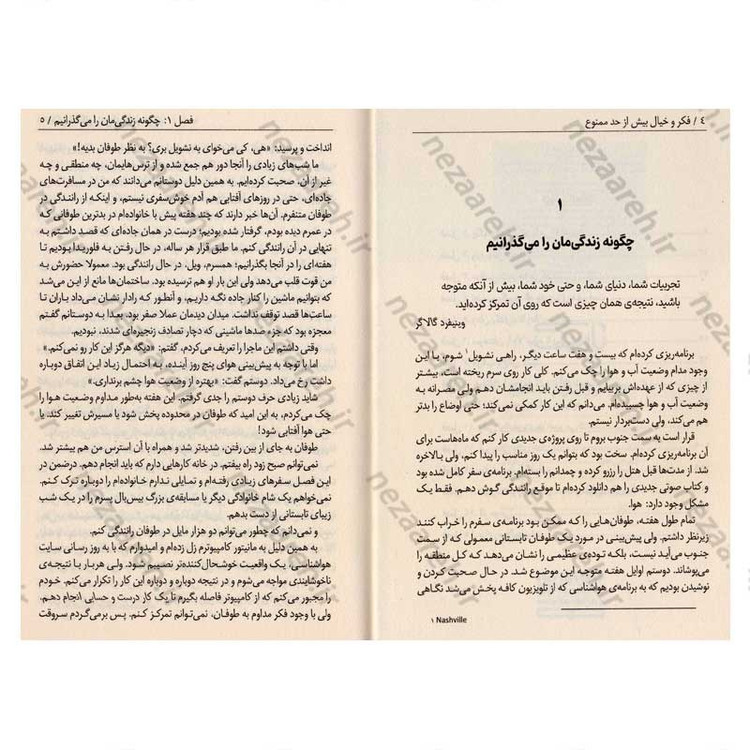 ۴ / فکر و خیال بیش از حد ممنوع
۱
چگونه زندگی‌مان را می‌گذرانیم
تجربیات شما، دنیای شما، و حتی خود شما، بیش از آنکه متوجه
باشید، نتیجه‌ی همان چیزی است که روی آن تمرکز کرده‌اید.
وینیفرد گالاگر
برنامه‌ریزی کرده‌ام که بیست و هفت ساعت دیگر، راهی نشویل۱ شوم، با این
وجود مدام وضعیت آب و هوا را چک می‌کنم. کلی کار روی سرم ریخته است، بیشتر
از چیزی که از عهده‌اش بربیایم و قبل رفتن باید انجامشان دهم. ولی مصرانه به
آب و هوا چسبیده‌ام. می‌دانم که این کار کمکی نمی‌کند؛ حتی اوضاع را بدتر
هم می‌کند، ولی دست‌بردار نیستم.
قرار است به سمت جنوب بروم تا روی پروژه‌ی جدیدی کار کنم که ماه‌هاست برای
آن برنامه‌ریزی کرده‌ام. سخت بود که بتوانم یک روز مناسب را پیدا کنم، ولی بالاخره
شد. از مدت‌ها قبل هتل را رزرو کرده و چمدانم را بسته‌ام. برنامه‌ی سفر کامل شده بود
و کتاب صوتی جدیدی را هم دانلود کرده‌ام تا موقع رانندگی گوش دهم. فقط یک
مشکل وجود دارد: هوا.
تمام طول هفته، طوفان‌هایی را که ممکن بود برنامه‌ی سفرم را خراب کنند
زیرنظر داشتم. ولی پیش‌بینی در مورد یک طوفان تابستانی معمولی که از سمت
جنوب می‌آید نیست، بلکه توده‌ی عظیمی را نشان می‌دهد که کل منطقه را
می‌پوشاند. دوستم اوایل هفته متوجه این موضوع شد. در حال صحبت کردن و
نوشیدن بودیم که به برنامه‌ی هواشناسی که از تلویزیون کافه پخش می‌شد نگاهی
۱ Nashville
فصل ۱: چگونه زندگی‌مان را می‌گذرانیم / ۵
انداخت و پرسید: «هی، کی می‌خوای به نشویل بری؟ به نظر طوفان بدیه!»
ما شب‌های زیادی را آنجا دور هم جمع شده و از ترس‌هایمان، چه منطقی و چه
غیر از آن، صحبت کرده‌ایم. به همین دلیل دوستانم می‌دانند که من در مسافرت‌های
جاده‌ای، حتی در روزهای آفتابی هم آدم خوش‌سفری نیستم، و اینکه از رانندگی در
طوفان متنفرم. آن‌ها خبر دارند که چند هفته پیش با خانواده‌ام در بدترین طوفانی که
در عمرم دیده بودم، گرفتار شده بودیم؛ درست در همان جاده‌ای که قصد داشتم به
تنهایی در آن رانندگی کنم. ما طبق قرار هر ساله، در حال رفتن به فلوریدا بودیم تا
هفته‌ای را در آنجا بگذرانیم؛ همسرم، ویل، در حال رانندگی بود. معمولا حضورش به
من قوت قلب می‌دهد ولی این بار او هم ترسیده بود. ساختمان‌ها مانع از این می‌شد
که بتوانیم ماشین را کنار جاده نگه داریم، و آنطور که رادار نشان می‌داد باران تا
ساعت‌ها قصد توقف نداشت. میدان دیدمان عملا صفر بود. بعدا به دوستانم گفتم
معجزه بود که جزء صدها ماشینی که دچار تصادف زنجیره‌ای شدند، نبودیم.
وقتی داشتم این ماجرا را تعریف می‌کردم، گفتم: «دیگه هرگز این کار رو نمی‌کنم.»
اما با توجه به پیش‌بینی هوای پنج روز آینده، به احتمال زیاد این اتفاق دوباره
داشت رخ می‌داد. دوستم گفت: «بهتره از وضعیت هوا چشم برنداری.»
شاید زیادی حرف دوستم را جدی گرفتم. این هفته به‌طور مداوم وضعیت هوا را
چک می‌کردم، به این امید که طوفان در محدوده پخش شود یا مسیرش تغییر کند. یا
حتی هوا آفتابی شود!
طوفان به جای از بین رفتن، شدیدتر شد و همراه با آن استرس من هم بیشتر شد.
نمی‌توانم صبح زود راه بیفتم. در خانه کارهایی دارم که باید انجام دهم. درضمن در
این فصل سفرهای زیادی رفته‌ام و تمایلی ندارم خانواده‌ام را دوباره ترک کنم.
نمی‌خواهم یک شام خانوادگی دیگر یا مسابقه‌ی بزرگ بیس‌بال پسرم را در یک شب
زیبای تابستانی از دست بدهم.
و نمی‌دانم که چطور می‌توانم دو هزار مایل در طوفان رانندگی کنم.
به همین دلیل به مانیتور کامپیوترم زل زده‌ام و امیدوارم که با به روز رسانی سایت
هواشناسی، یک واقعیت خوشحال‌کننده‌تر نصیبم شود. ولی هربار با نتیجه‌ی
ناخوشایندی مواجه می‌شوم و در نتیجه دوباره و دوباره این کار را تکرار می‌کنم. خودم
را مجبور می‌کنم که از کامپیوتر فاصله بگیرم تا یک کار درست و حسابی انجام دهم.
ولی با وجود فکر مداوم به طوفان، نمی‌توانم تمرکز کنم. پس برمی‌گردم سروقت
nezaareh.ir